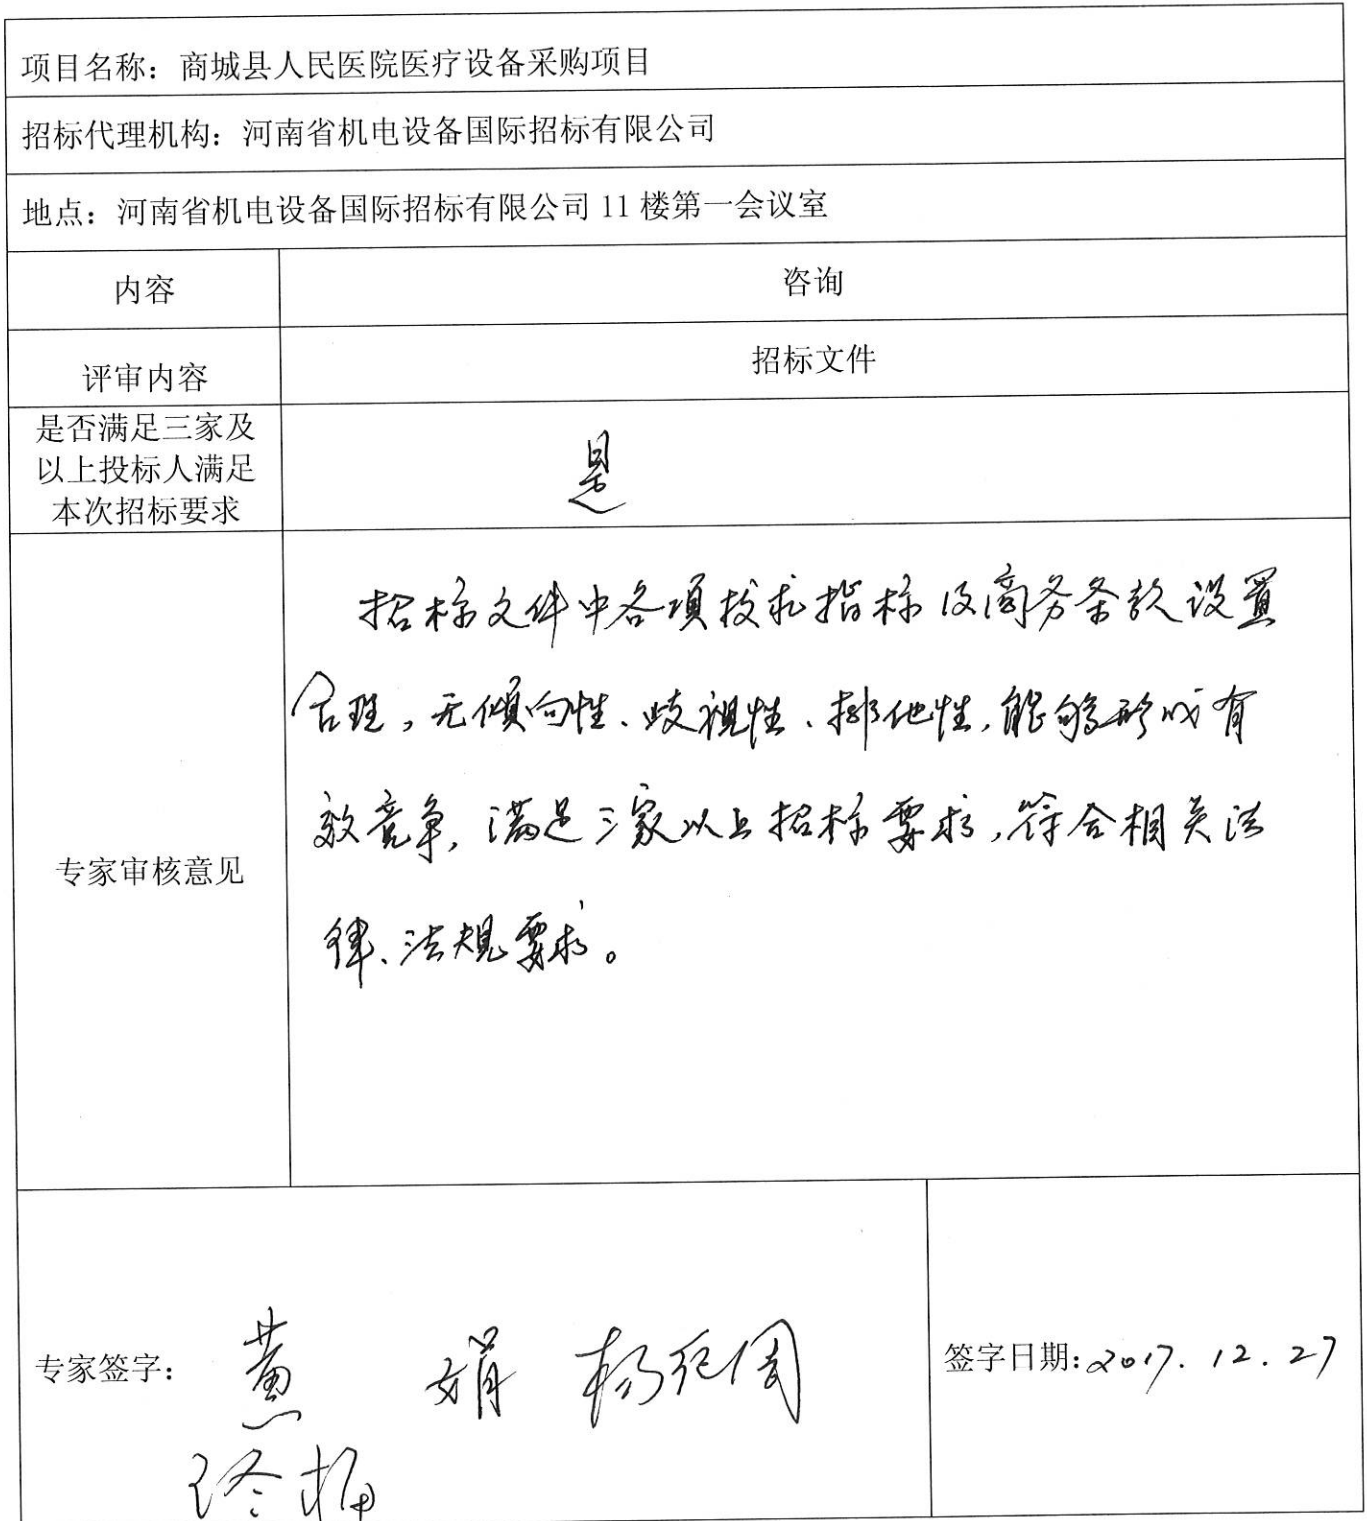 项目名称：商城县人民医院医疗设备采购项目
招标代理机构：河南省机电设备国际招标有限公司
地点：河南省机电设备国际招标有限公司 11 楼第一会议室
内容
咨询
评审内容
招标文件
是否满足三家及
以上投标人满足
本次招标要求
是
招标文件中各项技术指标及商务条款设置
合理，无倾向性、歧视性、排他性，能够形成有
效竞争，满足三家以上招标要求，符合相关法
律、法规要求。
专家审核意见
专家签字：
黄 娟 杨
签字日期：2017.12.27